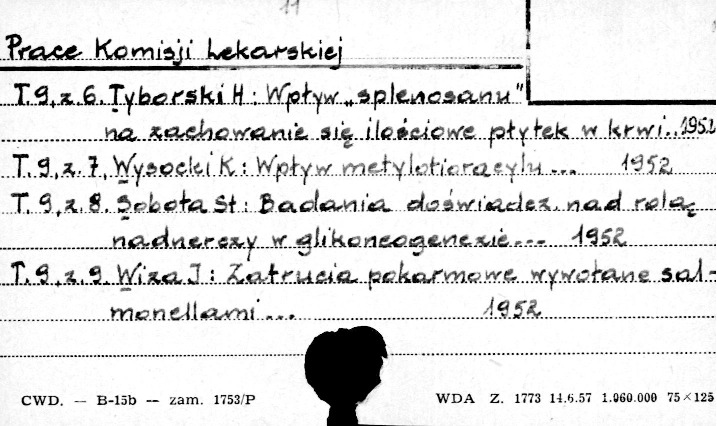 11
Prace Komisji Lekarskiej
T. 9, z. 6. Tyborski H: Wpływ „splenosanu"
na zachowanie się ilościowe płytek w krwi.. 1952
T. 9, z. 7. Wysocki K: Wpływ metylotioracylu... 1952
T. 9, z. 8. Sobota St: Badania doświadcz. nad rolą
nadnerczy w glikoneogenezie... 1952
T. 9, z. 9. Wiza J: Zatrucia pokarmowe wywołane sal-
monellami... 1952
CWD. — B-15b — zam. 1753/P WDA Z. 1773 14.6.57 1.060.000 75×125